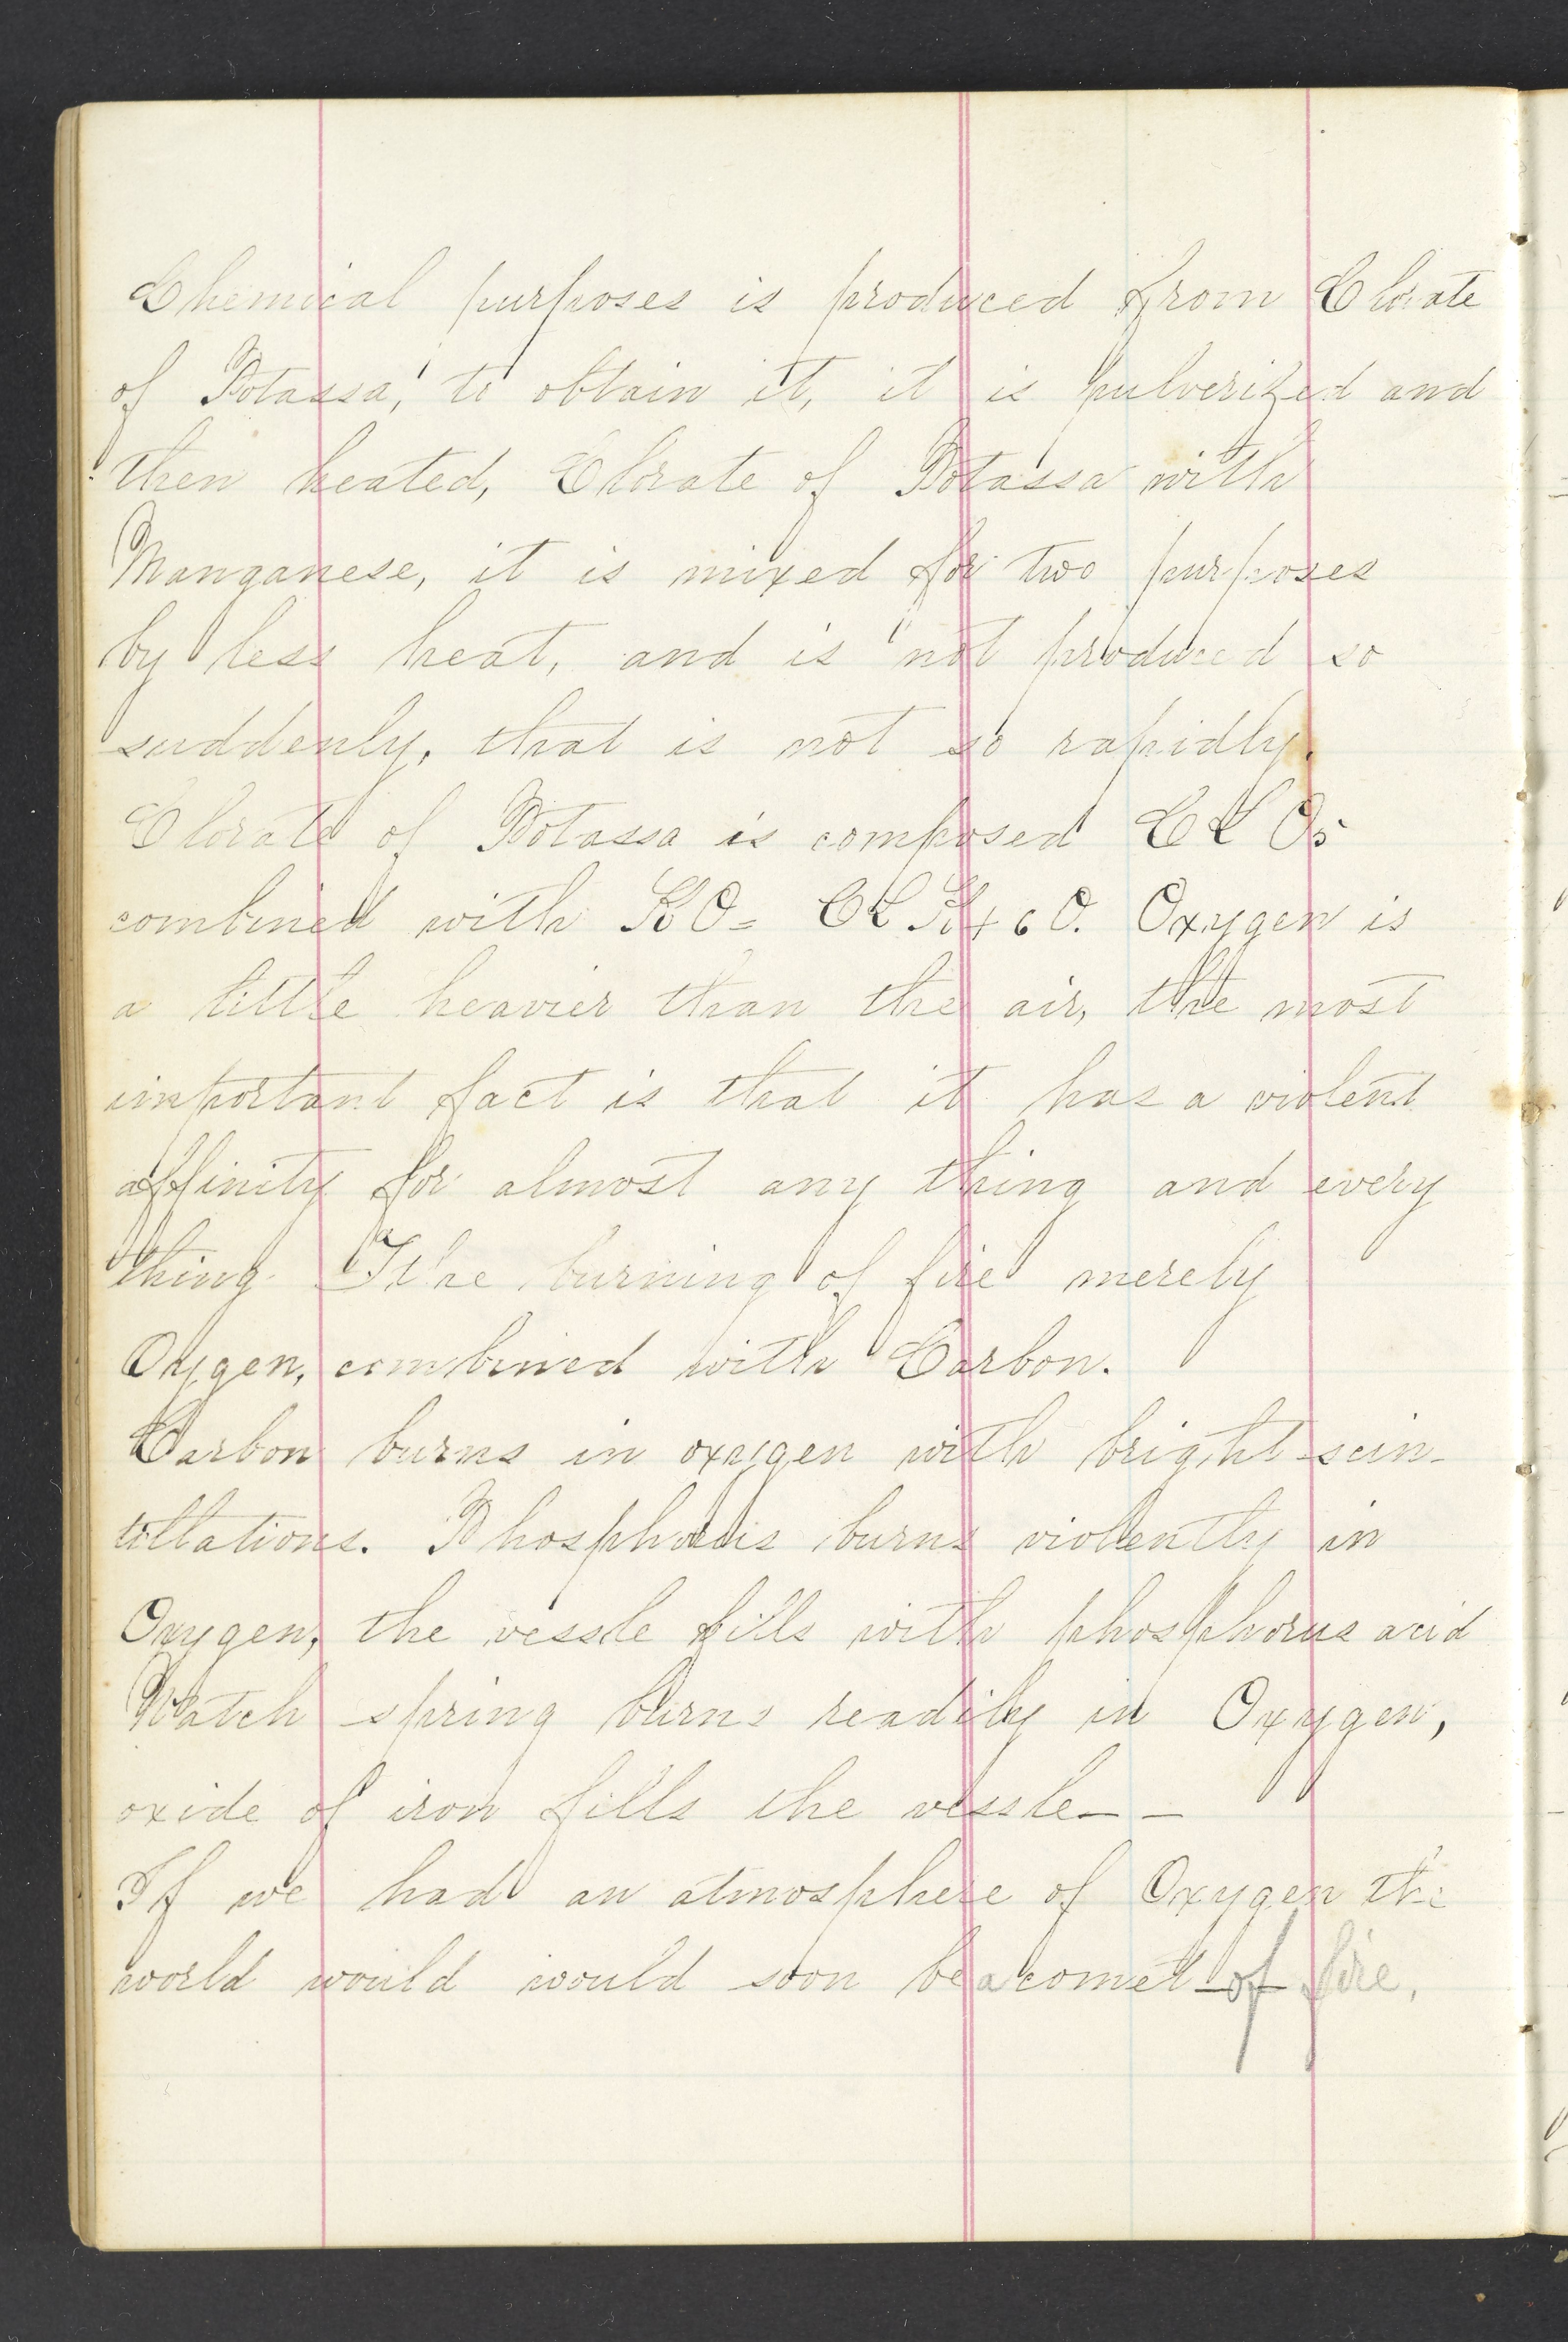 Chemical purposes is produced from Clorate
of Potassa, to obtain it, it is pulverized and
then heated, Clorate of Potassa with
Manganese, it is mixed for two purposes
by less heat, and is not produced so
suddenly, that is not so rapidly.
Clorate of Potassa is composed Cl O5
combined with KO = Cl K + 6 O. Oxygen is
a little heavier than the air, the most
important fact is that it has a violent
affinity for almost any thing and every
thing. The burning of fire merely
Oxygen, combined with Carbon.
Carbon burns in oxygen with bright scin-
tillations. Phosphorus burns violently in
Oxygen, the vessle fills with phosphorus acid
Watch spring burns readily in Oxygen,
oxide of iron fills the vessle — —
If we had an atmosphere of Oxygen the
world would would soon be a comet of fire.